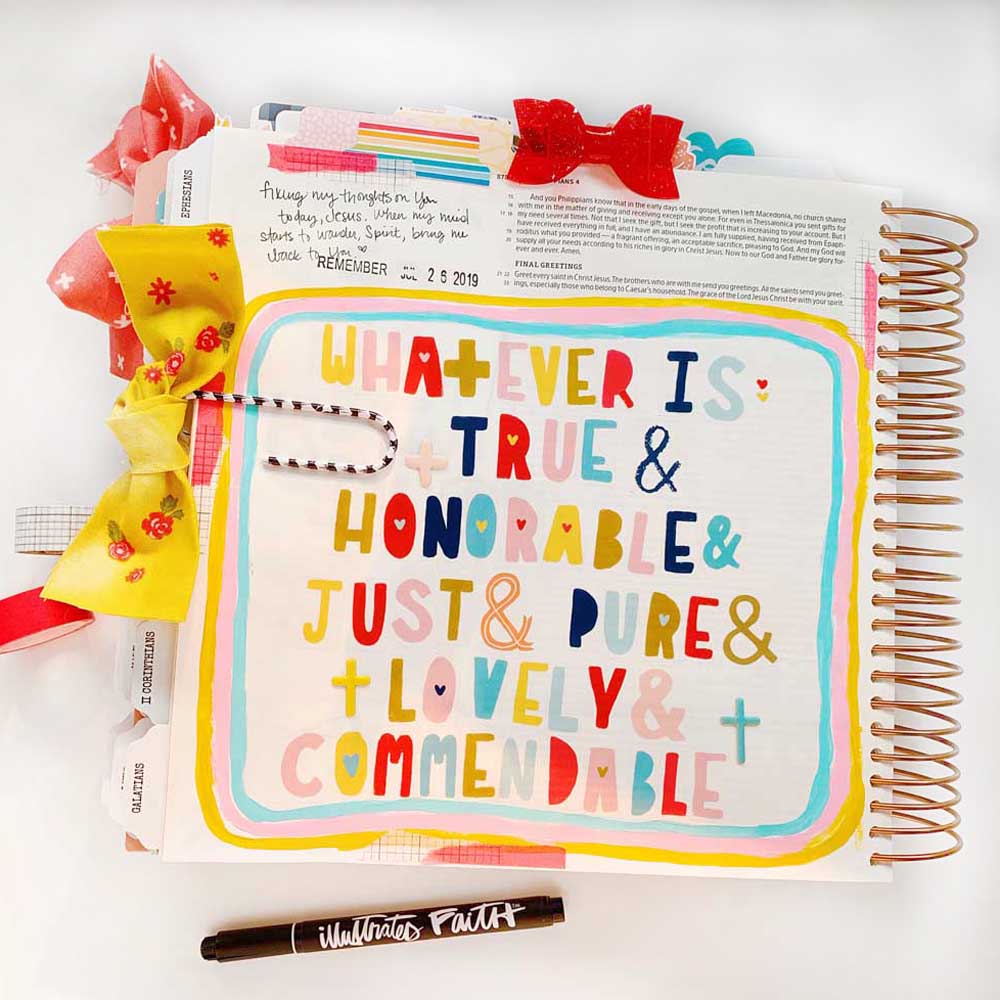 EPHESIANS
fixing my thoughts on You
today, Jesus. When my mind
starts to wander, Spirit, bring me
back to You
REMEMBER JUL 26 2019
And you Philippians know that in the early days of the gospel, when I left Macedonia, no church shared
with me in the matter of giving and receiving except you alone. For even in Thessalonica you sent gifts for
my need several times. Not that I seek the gift, but I seek the profit that is increasing to your account. But I
have received everything in full, and I have an abundance. I am fully supplied, having received from Epaph-
roditus what you provided — a fragrant offering, an acceptable sacrifice, pleasing to God. And my God will
supply all your needs according to his riches in glory in Christ Jesus. Now to our God and Father be glory for-
ever and ever. Amen.
FINAL GREETINGS
21 22 Greet every saint in Christ Jesus. The brothers who are with me send you greetings. All the saints send you greet-
23 ings, especially those who belong to Caesar's household. The grace of the Lord Jesus Christ be with your spirit.
WHATEVER IS
TRUE &
HONORABLE &
JUST & PURE &
LOVELY &
COMMENDABLE
II CORINTHIANS
GALATIANS
illustrated FAITH